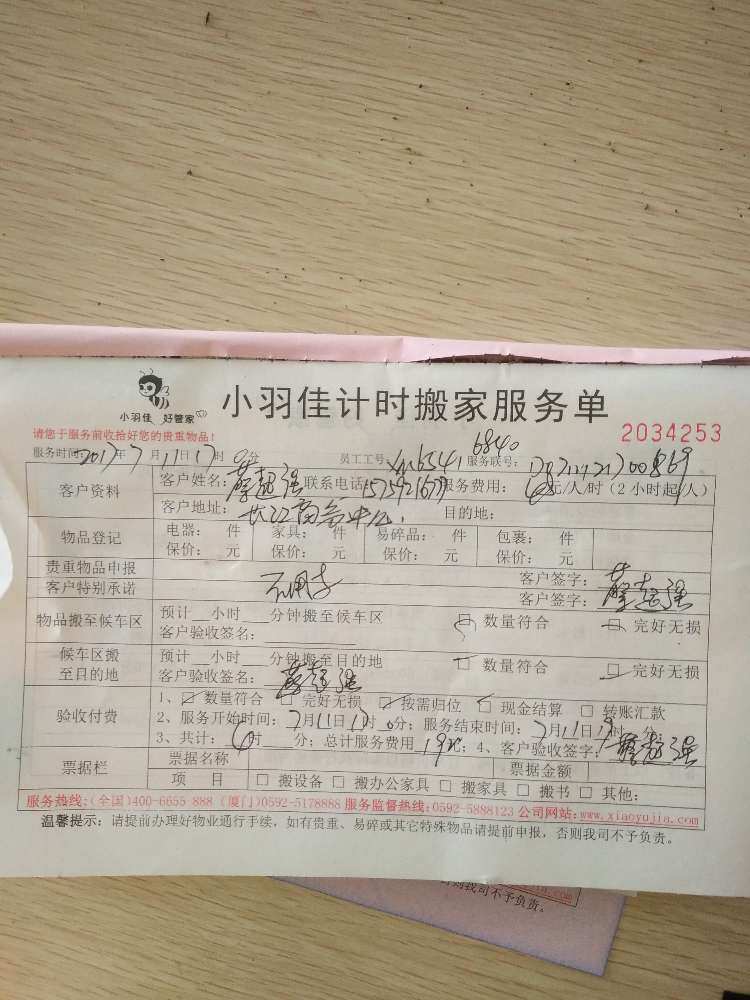 小羽佳 好管家
小羽佳计时搬家服务单
2034253
请您于服务前收拾好您的贵重物品!
服务时间:2017年7月11日17时0分 员工工号: 6840 服务联号:
客户资料 客户姓名: 超强 联系电话 服务费用: 元/人/时(2小时起/人)
客户地址: 目的地:
物品登记 电器: 件 家具: 件 易碎品: 件 包裹: 件
保价: 元 保价: 元 保价: 元 保价: 元
贵重物品申报 客户签字: 超强
客户特别承诺 客户签字:
物品搬至候车区 预计__小时__分钟搬至候车区 □ 数量符合 □ 完好无损
客户验收签名:
候车区搬至目的地 预计__小时__分钟搬至目的地 □ 数量符合 □ 完好无损
客户验收签名: 超强
验收付费 1、☑ 数量符合 □ 完好无损 □ 按需归位 □ 现金结算 □ 转账汇款
2、服务开始时间: 7月11日17时0分; 服务结束时间: 7月11日19时__分;
3、共计: 时__分; 总计服务费用 ; 4、客户验收签字: 超强
票据栏 票据名称 票据金额
项 目 □ 搬设备 □ 搬办公家具 □ 搬家具 □ 搬书 □ 其他:
服务热线:(全国)400-6655-888 (厦门)0592-5178888 服务监督热线:0592-5888123 公司网站:www.xiaoyujia.com
温馨提示: 请提前办理好物业通行手续, 如有贵重、易碎或其它特殊物品请提前申报, 否则我司不予负责。
否则我司不予负责。